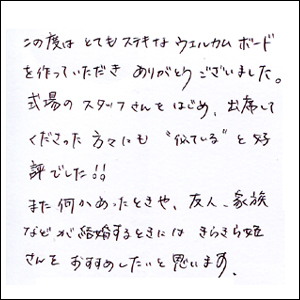 この度は とてもステキなウェルカムボード
を作っていただき ありがとうございました。
式場のスタッフさんをはじめ、出席して
くださった方々にも “似ている” と好
評でした!!
また何かあったときや、友人、家族
などが結婚するときには きらきら姫
さんを おすすめしたいと思います。